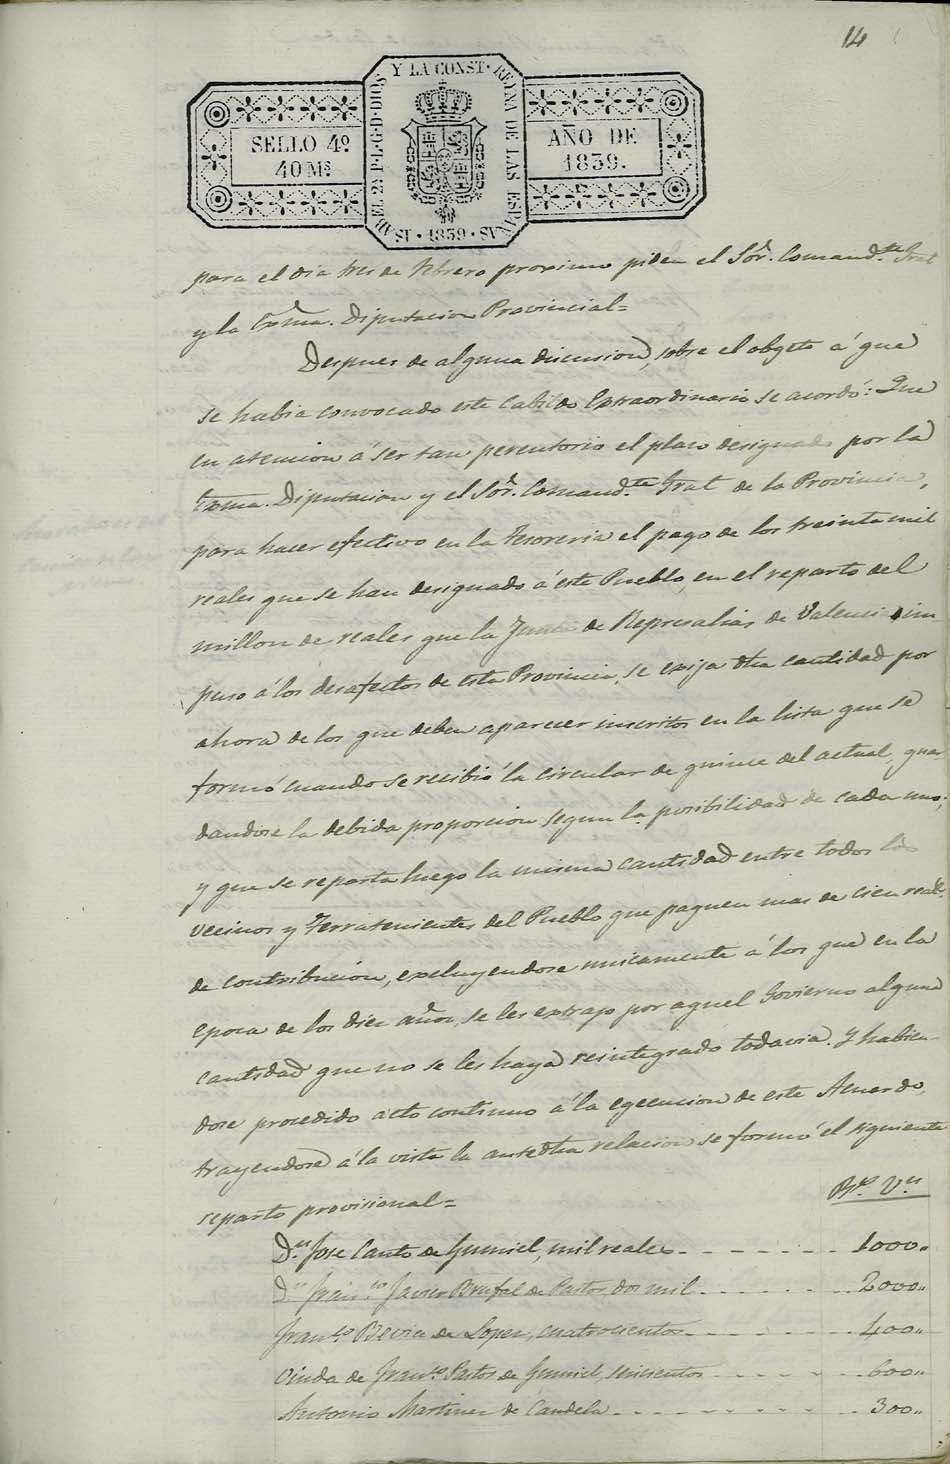 14
Y LA CONST. REYNA DE LAS ESPAÑAS
ISABEL 2ª P. L. G. D. DIOS
SELLO 4º
40 Mˢ
AÑO DE
1839.
1839
para el dia tres de febrero proximo piden el Sōr. Comand.te Gral
y la Exma. Diputacion Provincial=
Despues de alguna discusion, sobre el obgeto á que
se habia convocado este Cabildo Extraordinario se acordó: Que
en atencion á ser tan perentorio el plazo designado por la
Exma. Diputacion y el Sōr. Comand.te Gral de la Provincia,
para hacer efectivo en la Tesoreria el pago de los treinta mil
reales que se han designado á este Pueblo, en el reparto del
millon de reales que la Junta de Represalias de Valencia im
puso á los desafectos de esta Provincia, se exija dha cantidad por
ahora de los que deben aparecer inscritos en la lista que se
formó cuando se recibió la circular de quince del actual, guar
dandose la debida proporcion segun la posibilidad de cada uno;
y que se reparta luego la misma cantidad entre todos los
vecinos y Terratenientes del Pueblo que paguen mas de cien real.s
de contribucion, excluyendose unicamente á los que en la
epoca de los diez años, se les extrajo por aquel Govierno alguna
cantidad que no se les haya reintegrado todavia. Y habien-
dose procedido acto continuo á la egecucion de este Acuerdo,
trayendose á la vista la antedha relacion se formó el siguiente
reparto provisional=
R.s V.n
D.n Jose Canto de Gumiel, mil reales 1000..
D.n Fran.co Javier Brufal de Pastor, dos mil 2000..
Fran.co Bevia de Lopez, cuatrocientos 400..
Viuda de Fran.co Pastor de Gumiel, seiscientos 600..
Antonio Martinez de Candela 300..